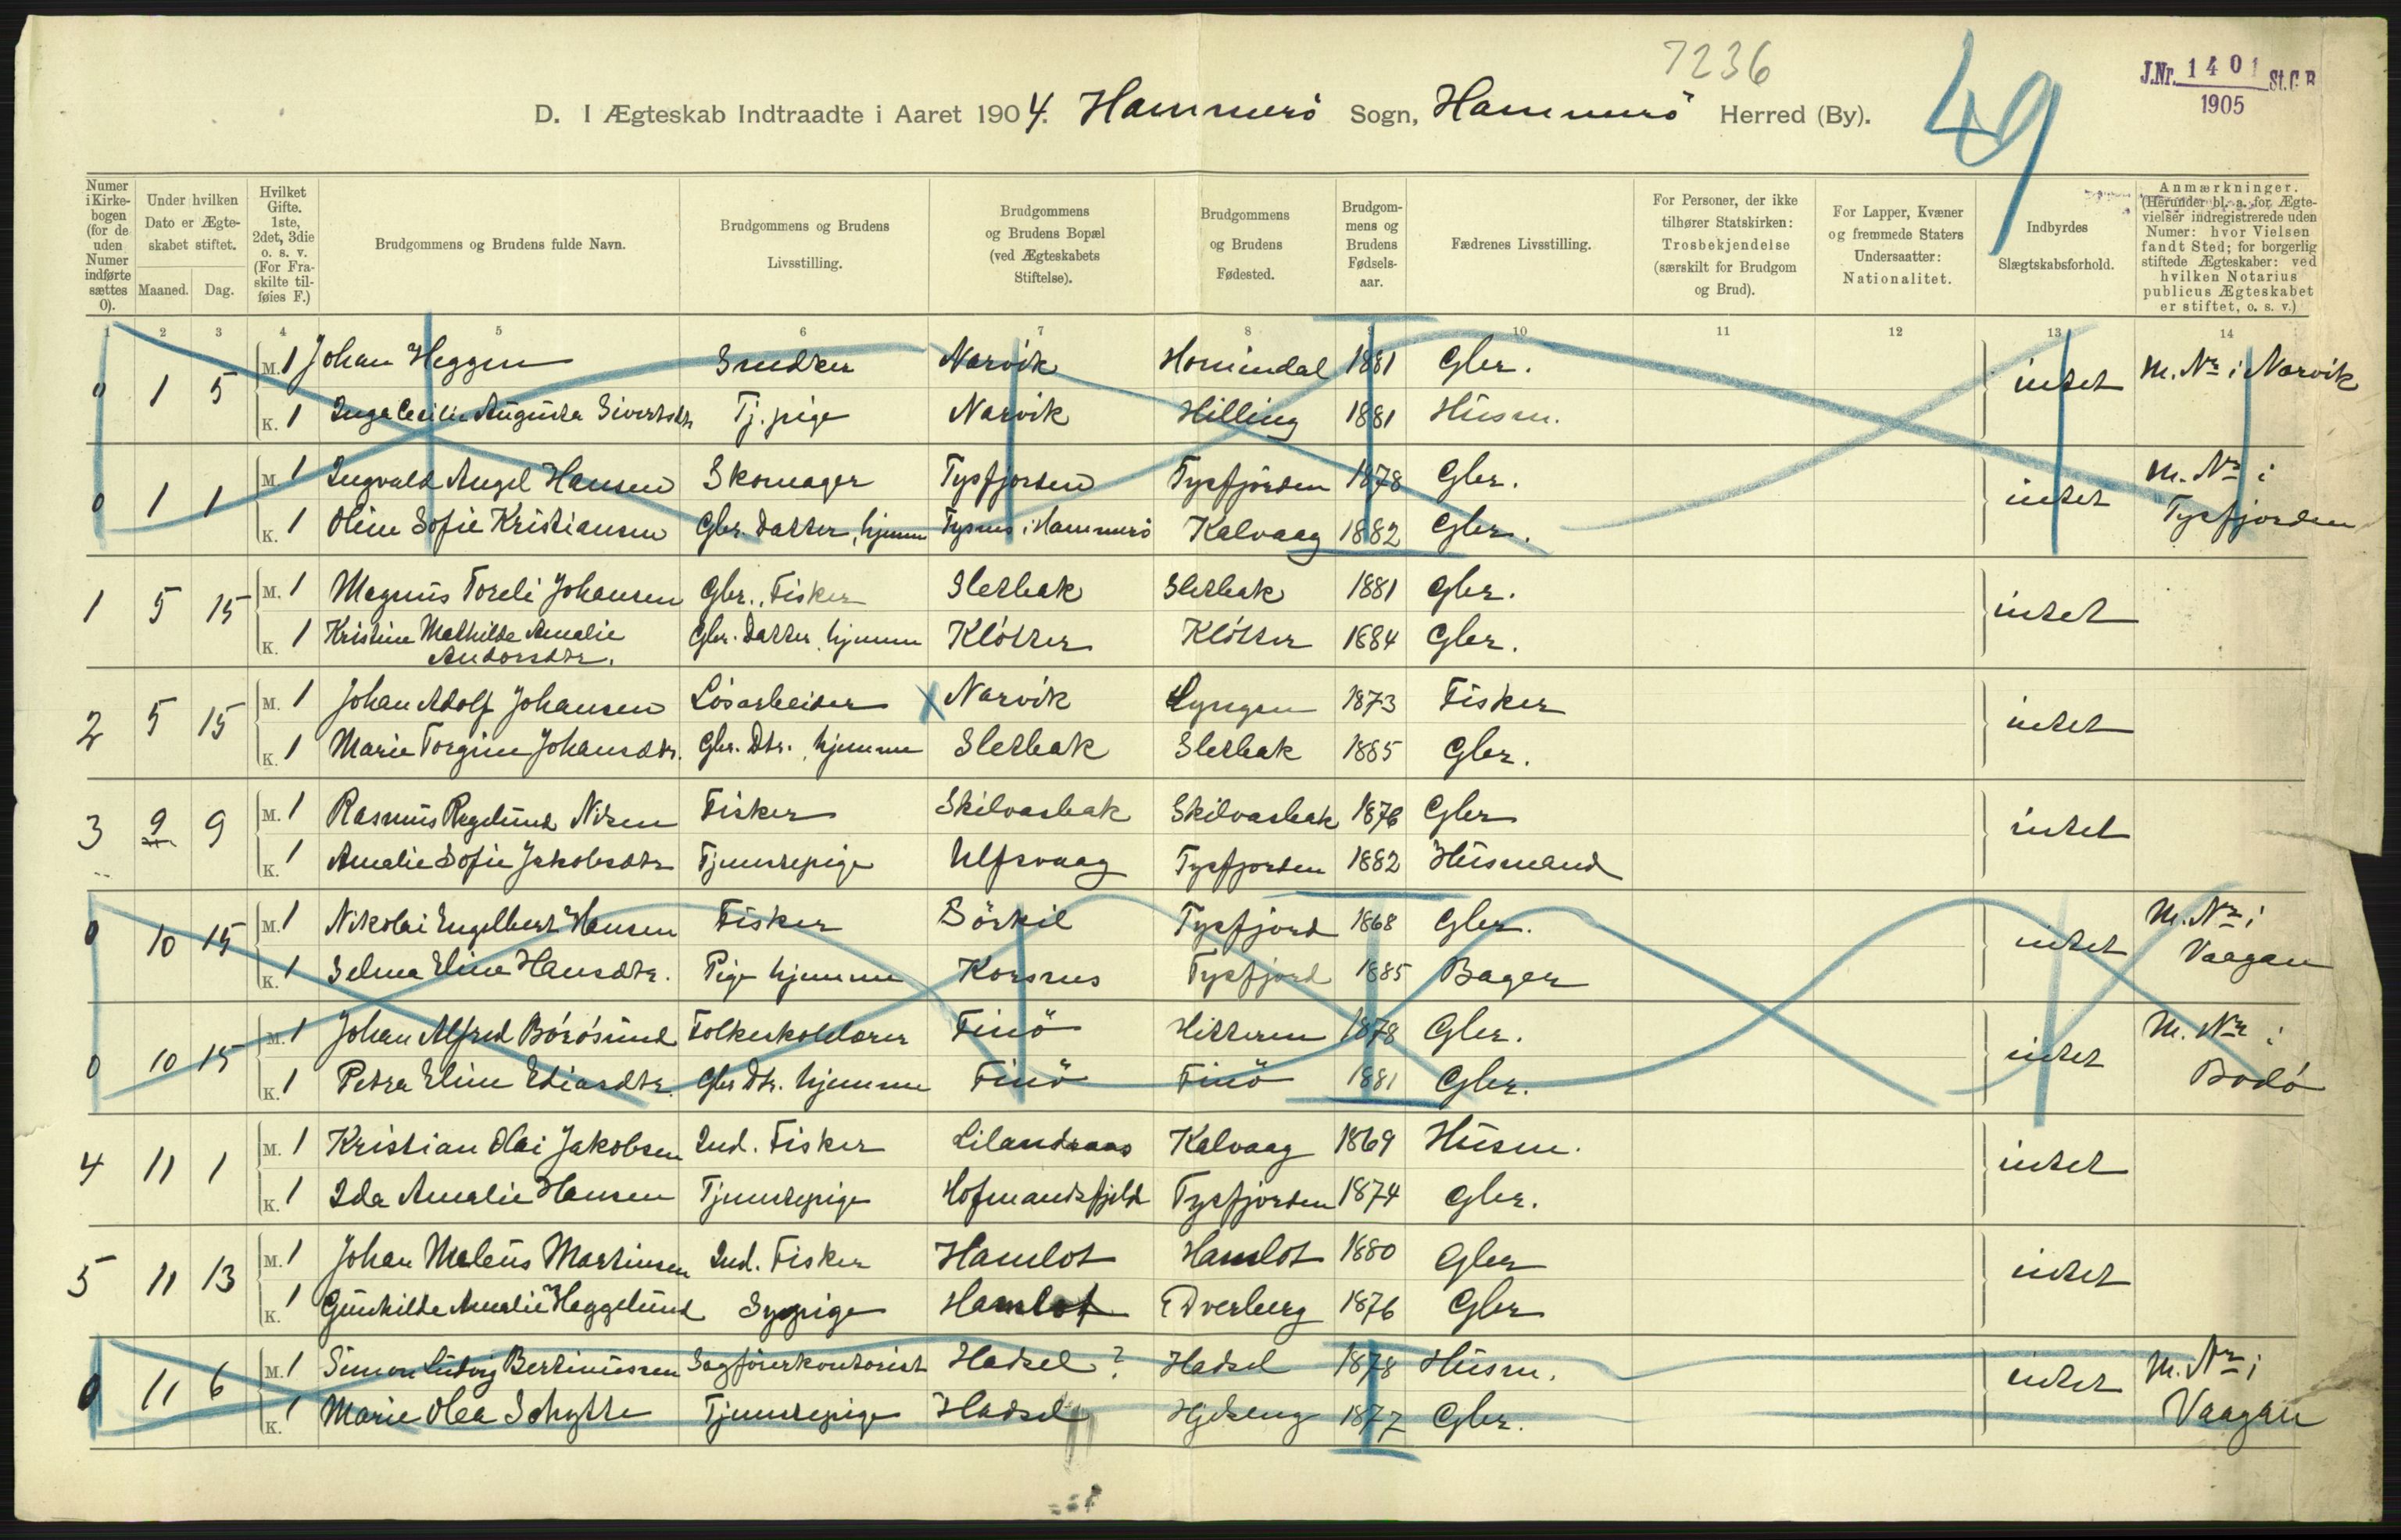 7236
49
J.Nr. 1401 St.C.B.
1905
D. I Ægteskab Indtraadte i Aaret 1904. Hammerö Sogn, Hammerö Herred (By).
Numer i Kirkebogen (for de uden Numer indførte sættes 0).
Under hvilken Dato er Ægteskabet stiftet.
Maaned. Dag.
Hvilket Gifte. 1ste, 2det, 3die o. s. v. (For Fraskilte tilføies F.)
Brudgommens og Brudens fulde Navn.
Brudgommens og Brudens Livsstilling.
Brudgommens og Brudens Bopæl (ved Ægteskabets Stiftelse).
Brudgommens og Brudens Fødested.
Brudgommens og Brudens Fødselsaar.
Fædrenes Livsstilling.
For Personer, der ikke tilhører Statskirken: Trosbekjendelse (særskilt for Brudgom og Brud).
For Lapper, Kvæner og fremmede Staters Undersaatter: Nationalitet.
Indbyrdes Slægtskabsforhold.
Anmærkninger. (Herunder bl. a. for Ægtevielser indregistrerede uden Numer: hvor Vielsen fandt Sted; for borgerlig stiftede Ægteskaber: ved hvilken Notarius publicus Ægteskabet er stiftet, o. s. v.)
1 2 3 4 5 6 7 8 9 10 11 12 13 14
0 1 5 M. 1 Johan Heggen Snedker Narvik Honindal 1881 Gbr. intet m. Nr i Narvik
K. 1 Inga Cecilie Augusta Sivertsdtr Tj. pige Narvik Hilling 1881 Husm.
0 1 1 M. 1 Ingvald Angel Hansen Skomager Tysfjorden Tysfjorden 1878 Gbr. intet m. Nr i Tysfjorden
K. 1 Oline Sofie Kristiansen Gbr. Datter, hjemme Tysnes i Hammerö Kalvaag 1882 Gbr.
1 5 15 M. 1 Magnus Toreli Johansen Gbr., Fisker Sletbak Sletbak 1881 Gbr. intet
K. 1 Kristine Mathilde Amalie Andorsdtr. Gbr. Datter, hjemme Klótter Klótter 1884 Gbr.
2 5 15 M. 1 Johan Adolf Johansen Lósarbeider x Narvik Lyngen 1873 Fisker intet
K. 1 Marie Torgine Johansdtr. Gbr. Dtr., hjemme Sletbak Sletbak 1885 Gbr.
3 9 9 M. 1 Rasmus Regelund Nilsen Fisker Skilvasbak Skilvasbak 1876 Gbr intet
K. 1 Amalie Sofie Jakobsdtr Tjenestepige Ulfsvaag Tysfjorden 1882 Husmand
0 10 15 M. 1 Nikolai Engelbert Hansen Fisker Börkil Tysfjord 1868 Gbr. intet M. Nr i Vaagan
K. 1 Selma Eline Hansdtr. Pige hjemme Korsnes Tysfjord 1885 Bager
0 10 15 M. 1 Johan Alfred Bórósund Folkeskolelærer Finö Hitteren 1878 Gbr. intet M. Nr i Bodó
K. 1 Petra Eline Ediasdtr. Gbr Dtr. hjemme Finö Finö 1881 Gbr.
4 11 1 M. 1 Kristian Olai Jakobsen Ind. Fisker Lilandsaas Kalvaag 1869 Husm. intet
K. 1 Ida Amalie Hansen Tjenestepige Hofmandsfjeld Tysfjorden 1874 Gbr.
5 11 13 M. 1 Johan Meleus Martinsen Ind. Fisker Hamlot Hamlot 1880 Gbr intet
K. 1 Gunhilde Amalie Heggelund Sypige Hamlot Dverberg 1876 Gbr
0 11 6 M. 1 Simon Ludvig Bertinussen Sagförerkontorist Hadsel? Hadsel 1878 Husm. intet M. Nr i Vaagan
K. 1 Marie Olea Schytte Tjenestepige Hadsel 1877 Gbr.